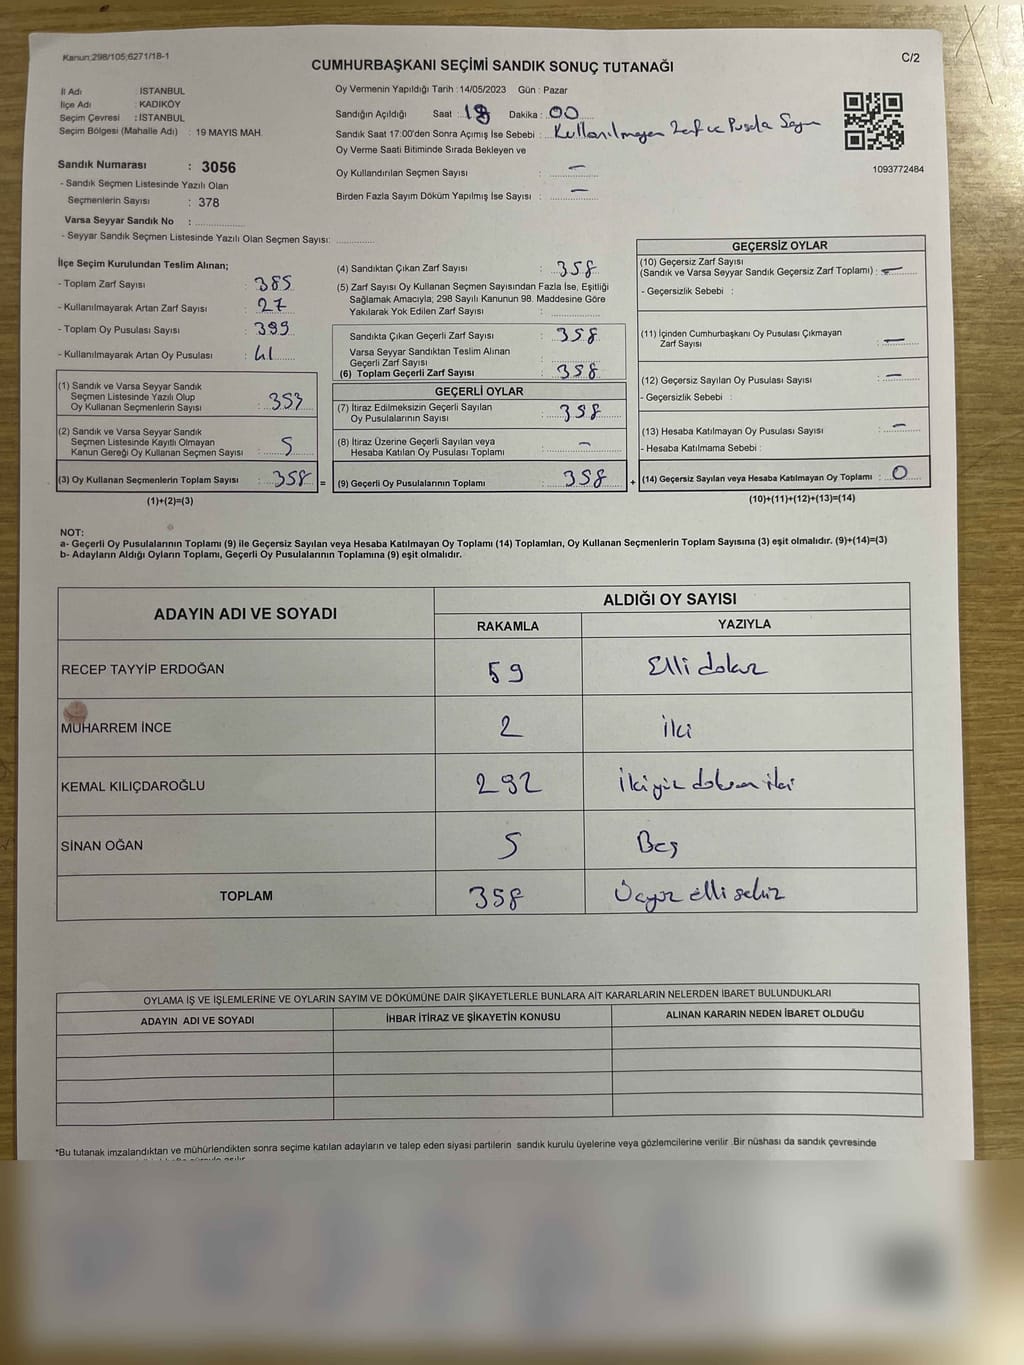 Kanun:298/105;6271/18-1
C/2
CUMHURBAŞKANI SEÇİMİ SANDIK SONUÇ TUTANAĞI
İl Adı : İSTANBUL
İlçe Adı : KADIKÖY
Seçim Çevresi : İSTANBUL
Seçim Bölgesi (Mahalle Adı) : 19 MAYIS MAH.
Sandık Numarası : 3056
- Sandık Seçmen Listesinde Yazılı Olan
Seçmenlerin Sayısı : 378
Varsa Seyyar Sandık No :
- Seyyar Sandık Seçmen Listesinde Yazılı Olan Seçmen Sayısı:
Oy Vermenin Yapıldığı Tarih : 14/05/2023 Gün : Pazar
Sandığın Açıldığı Saat : 18 Dakika : 00
Sandık Saat 17:00'den Sonra Açımış İse Sebebi : Kullanılmayan Zarf ve Pusula Sayım
Oy Verme Saati Bitiminde Sırada Bekleyen ve
Oy Kullandırılan Seçmen Sayısı : —
Birden Fazla Sayım Döküm Yapılmış İse Sayısı : —
1093772484
İlçe Seçim Kurulundan Teslim Alınan;
- Toplam Zarf Sayısı : 385
- Kullanılmayarak Artan Zarf Sayısı : 27
- Toplam Oy Pusulası Sayısı : 399
- Kullanılmayarak Artan Oy Pusulası : 41
(1) Sandık ve Varsa Seyyar Sandık
Seçmen Listesinde Yazılı Olup
Oy Kullanan Seçmenlerin Sayısı : 353
(2) Sandık ve Varsa Seyyar Sandık
Seçmen Listesinde Kayıtlı Olmayan
Kanun Gereği Oy Kullanan Seçmen Sayısı : 5
(3) Oy Kullanan Seçmenlerin Toplam Sayısı : 358 =
(1)+(2)=(3)
(4) Sandıktan Çıkan Zarf Sayısı : 358
(5) Zarf Sayısı Oy Kullanan Seçmen Sayısından Fazla İse, Eşitliği
Sağlamak Amacıyla; 298 Sayılı Kanunun 98. Maddesine Göre
Yakılarak Yok Edilen Zarf Sayısı :
Sandıkta Çıkan Geçerli Zarf Sayısı : 358
Varsa Seyyar Sandıktan Teslim Alınan
Geçerli Zarf Sayısı :
(6) Toplam Geçerli Zarf Sayısı : 358
GEÇERLİ OYLAR
(7) İtiraz Edilmeksizin Geçerli Sayılan
Oy Pusulalarının Sayısı : 358
(8) İtiraz Üzerine Geçerli Sayılan veya
Hesaba Katılan Oy Pusulası Toplamı : —
(9) Geçerli Oy Pusulalarının Toplamı : 358 +
GEÇERSİZ OYLAR
(10) Geçersiz Zarf Sayısı
(Sandık ve Varsa Seyyar Sandık Geçersiz Zarf Toplamı) : —
- Geçersizlik Sebebi :
(11) İçinden Cumhurbaşkanı Oy Pusulası Çıkmayan
Zarf Sayısı : —
(12) Geçersiz Sayılan Oy Pusulası Sayısı : —
- Geçersizlik Sebebi :
(13) Hesaba Katılmayan Oy Pusulası Sayısı : —
- Hesaba Katılmama Sebebi :
(14) Geçersiz Sayılan veya Hesaba Katılmayan Oy Toplamı : 0
(10)+(11)+(12)+(13)=(14)
NOT:
a- Geçerli Oy Pusulalarının Toplamı (9) ile Geçersiz Sayılan veya Hesaba Katılmayan Oy Toplamı (14) Toplamları, Oy Kullanan Seçmenlerin Toplam Sayısına (3) eşit olmalıdır. (9)+(14)=(3)
b- Adayların Aldığı Oyların Toplamı, Geçerli Oy Pusulalarının Toplamına (9) eşit olmalıdır.
ADAYIN ADI VE SOYADI
ALDIĞI OY SAYISI
RAKAMLA YAZIYLA
RECEP TAYYİP ERDOĞAN 59 Elli dokuz
MUHARREM İNCE 2 İki
KEMAL KILIÇDAROĞLU 292 İkiyüz doksan iki
SİNAN OĞAN 5 Beş
TOPLAM 358 Üçyüz elli sekiz
OYLAMA İŞ VE İŞLEMLERİNE VE OYLARIN SAYIM VE DÖKÜMÜNE DAİR ŞİKAYETLERLE BUNLARA AİT KARARLARIN NELERDEN İBARET BULUNDUKLARI
ADAYIN ADI VE SOYADI İHBAR İTİRAZ VE ŞİKAYETİN KONUSU ALINAN KARARIN NEDEN İBARET OLDUĞU
*Bu tutanak imzalandıktan ve mühürlendikten sonra seçime katılan adayların ve talep eden siyasi partilerin sandık kurulu üyelerine veya gözlemcilerine verilir .Bir nüshası da sandık çevresinde